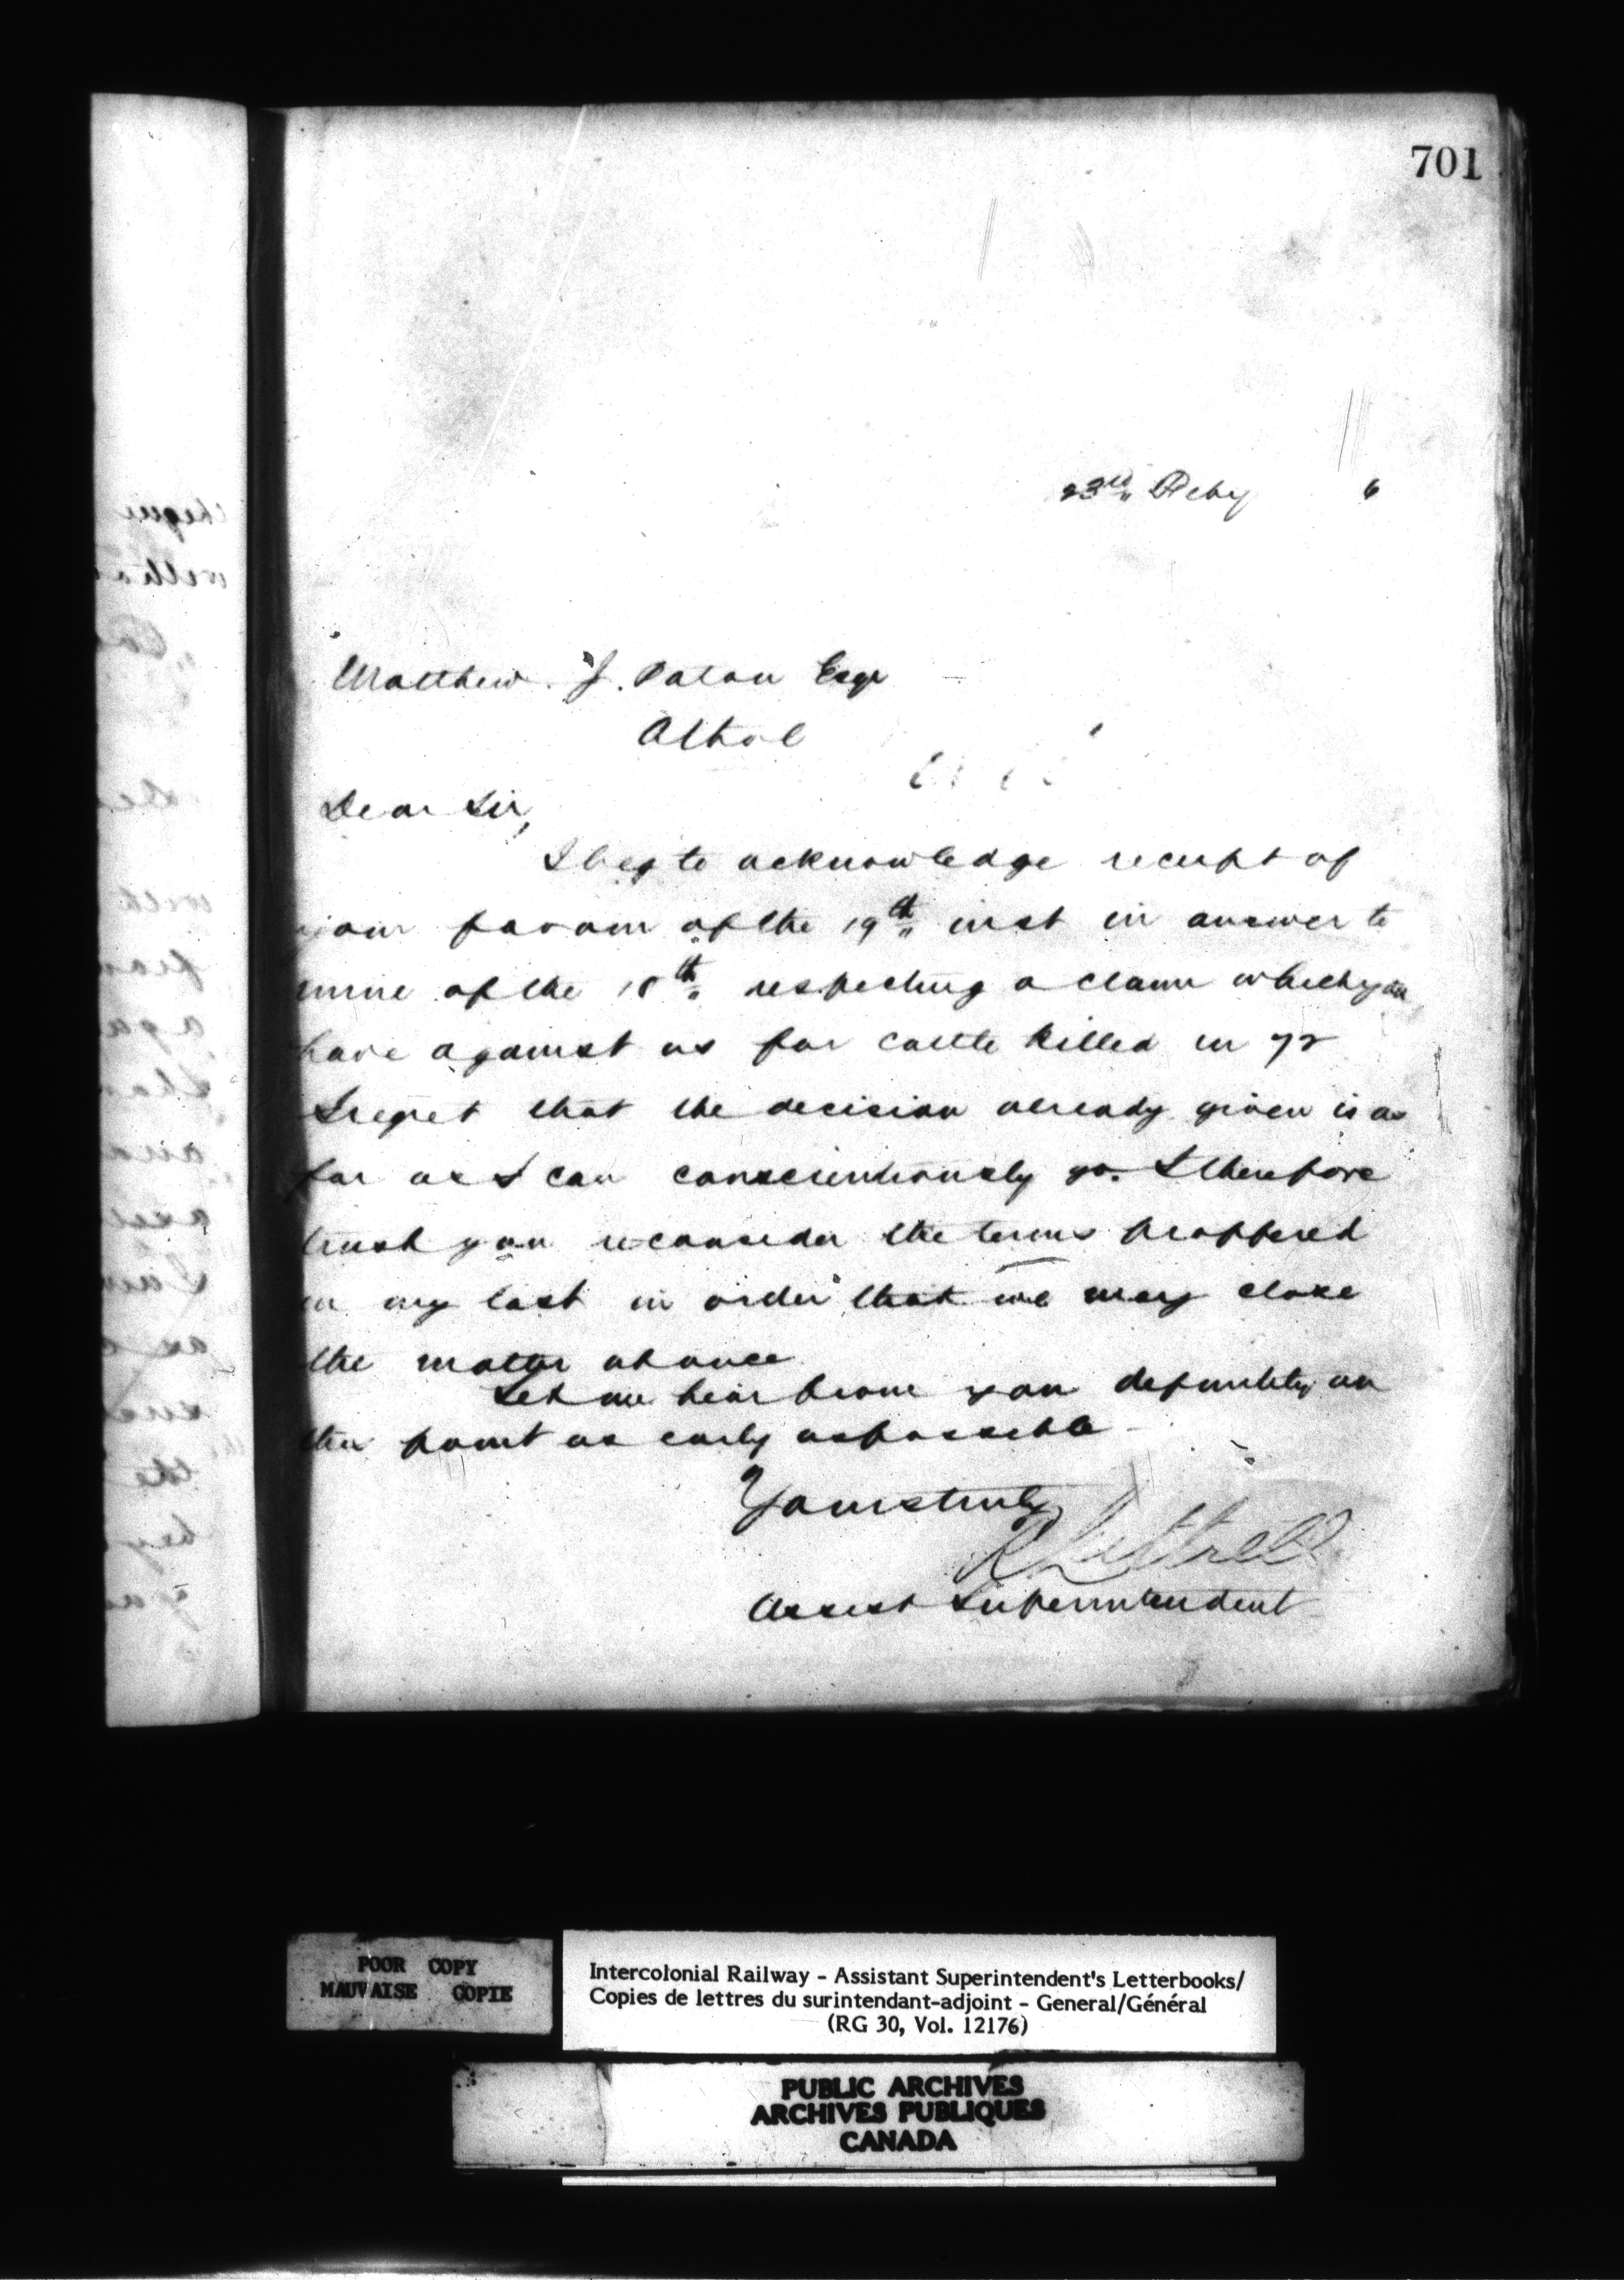 701
23rd Feby 6
Matthew J. Paton Esqr
Athol
Dear Sir,
I beg to acknowledge receipt of
your favour of the 19th inst in answer to
mine of the 18th respecting a claim which you
have against us for cattle killed in 72
I regret that the decision already given is as
far as I can conscientiously go. I therefore
trust you reconsider the terms proffered
in my last in order that we may close
the matter at once
Let me hear from you definitely on
this point as early as possible
Yours truly
R Luttrell
Assist Superintendent
POOR COPY
MAUVAISE COPIE
Intercolonial Railway - Assistant Superintendent's Letterbooks/
Copies de lettres du surintendant-adjoint - General/Général
(RG 30, Vol. 12176)
PUBLIC ARCHIVES
ARCHIVES PUBLIQUES
CANADA